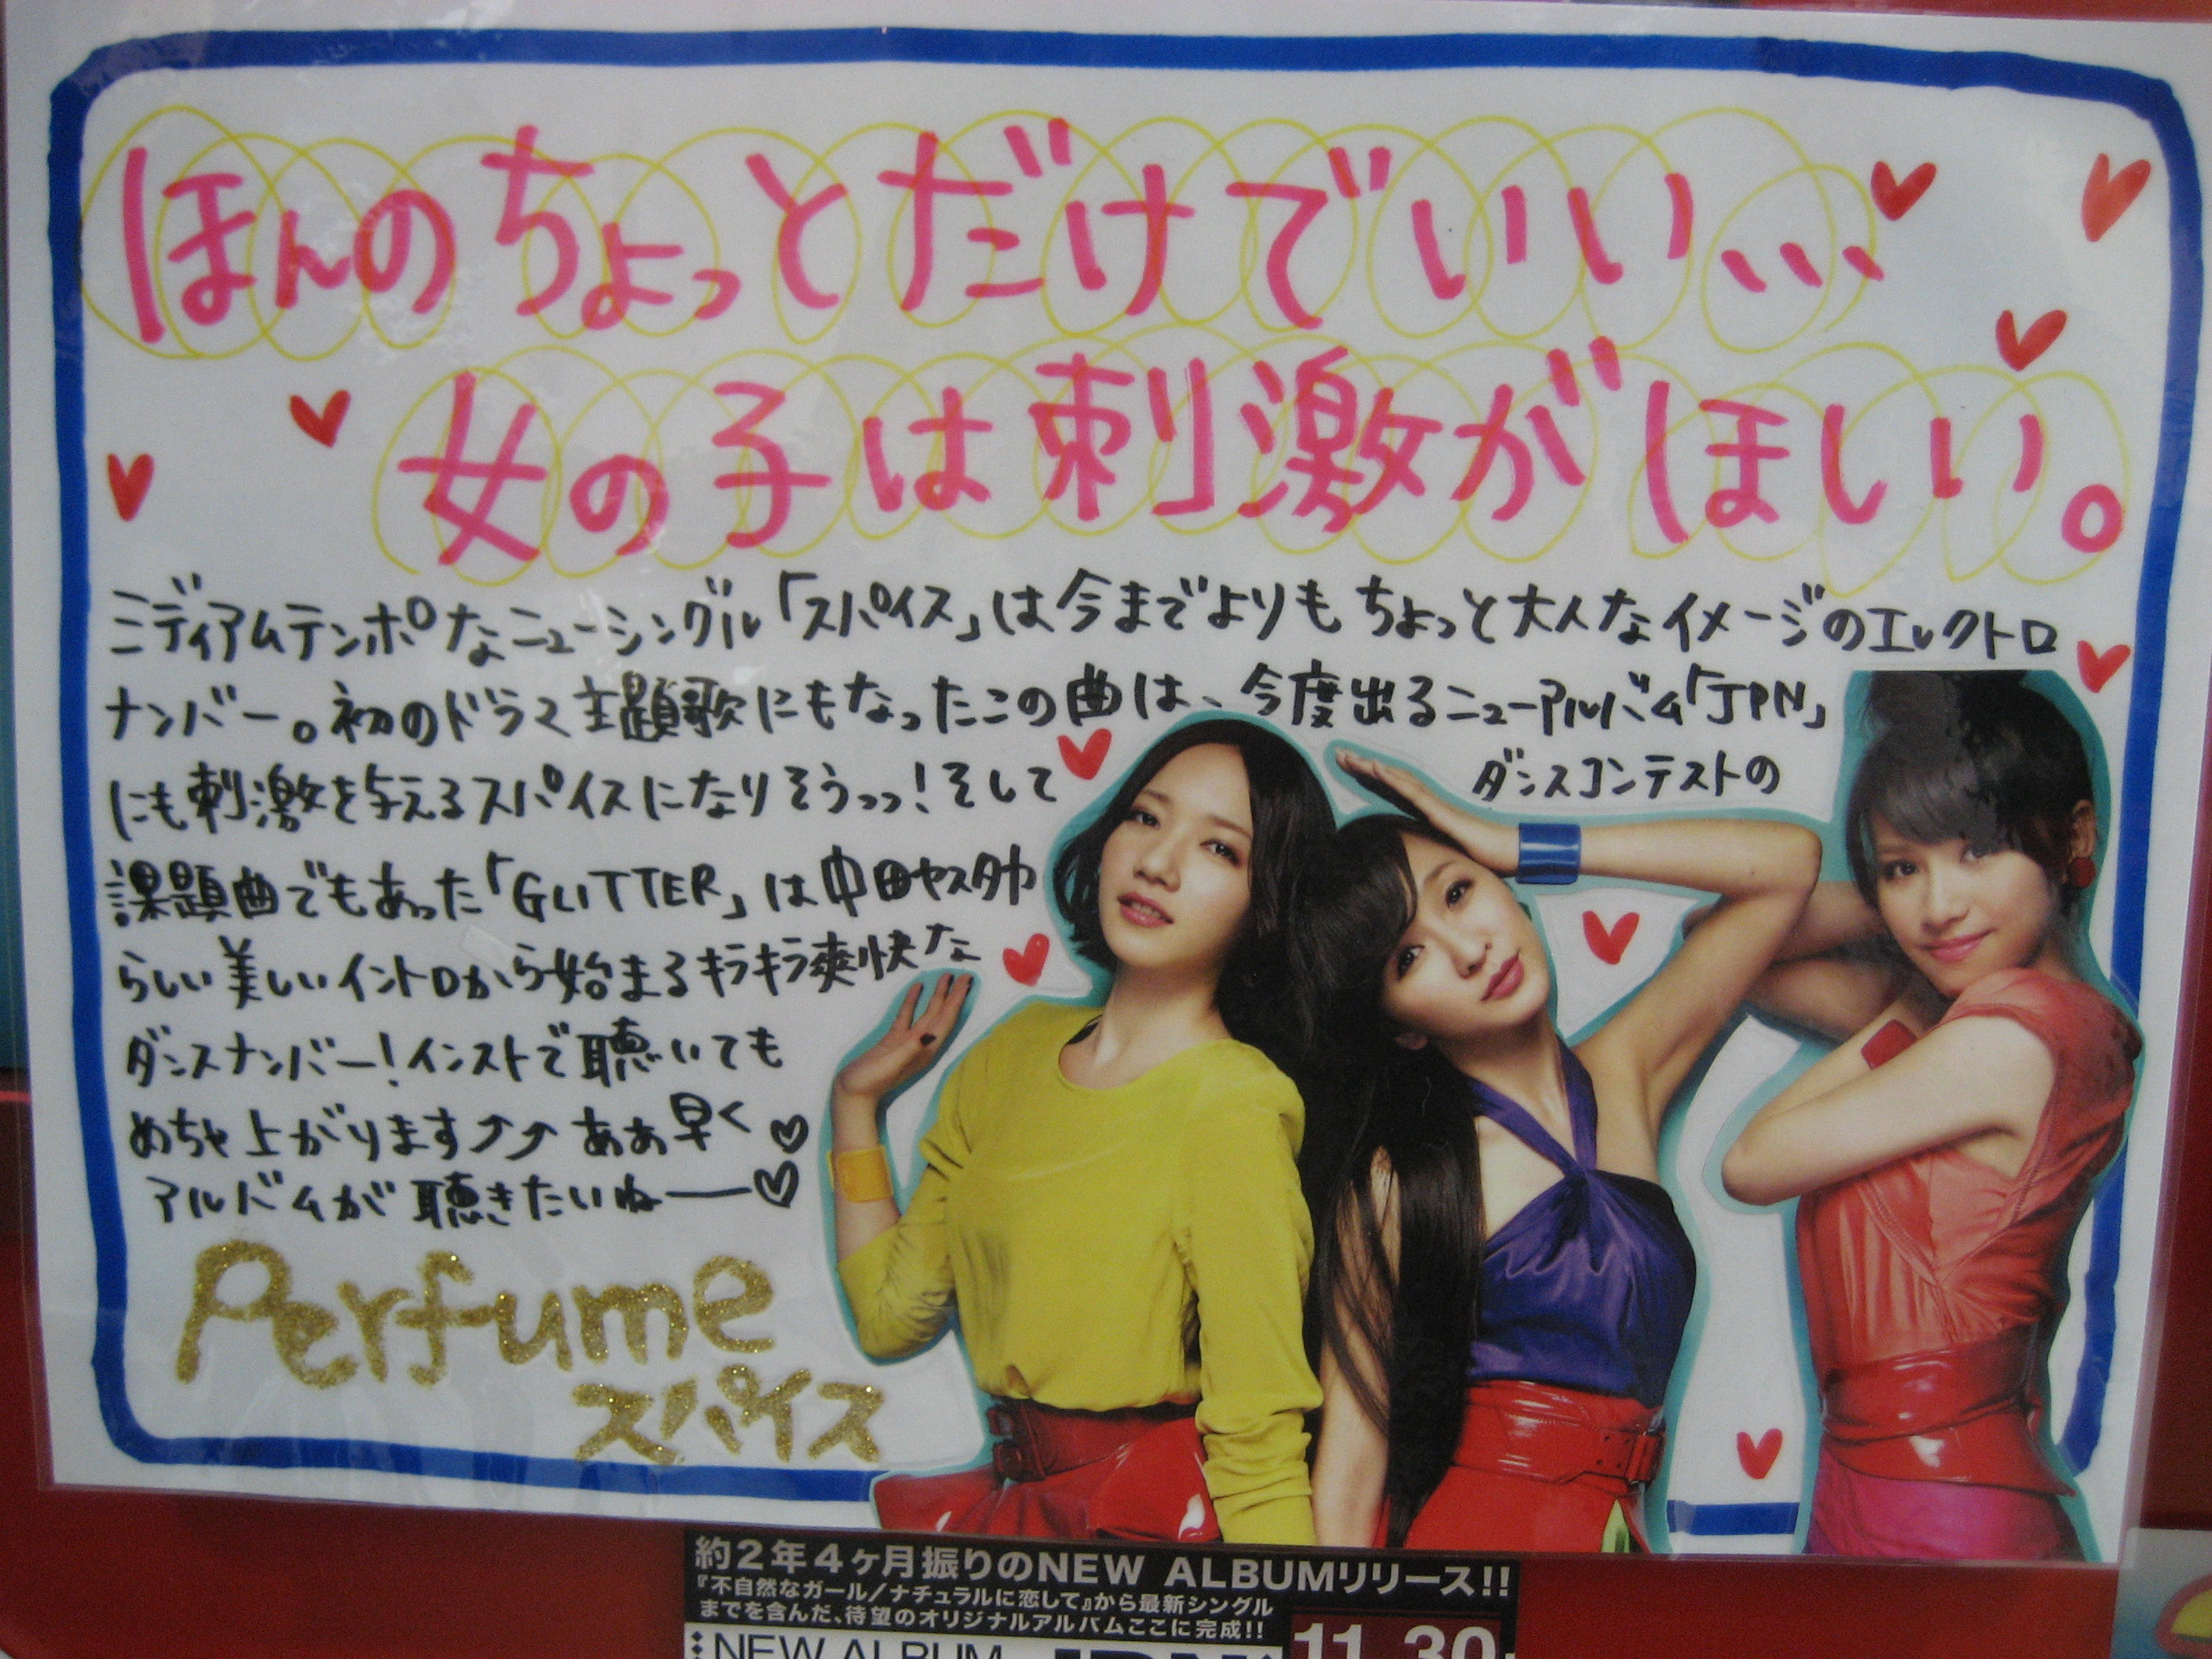 ほんのちょっとだけでいい...
女の子は刺激がほしい。
ミディアムテンポなニューシングル「スパイス」は今までよりもちょっと大人なイメージのエレクトロ
ナンバー。初のドラマ主題歌にもなったこの曲は、今度出るニューアルバム「JPN」
にも刺激を与えるスパイスになりそうっっ!そして
ダンスコンテストの
課題曲でもあった「GLITTER」は中田ヤスタカ
らしい美しいイントロから始まるキラキラ爽快な
ダンスナンバー!インストで聴いても
めちゃ上がります⤴⤴ ああ早く♡
アルバムが聴きたいねー♡
Perfume
スパイス
約2年4ヶ月振りのNEW ALBUMリリース!!
『不自然なガール/ナチュラルに恋して』から最新シングル
までを含んだ、待望のオリジナルアルバムここに完成!!
NEW ALBUM
11.30